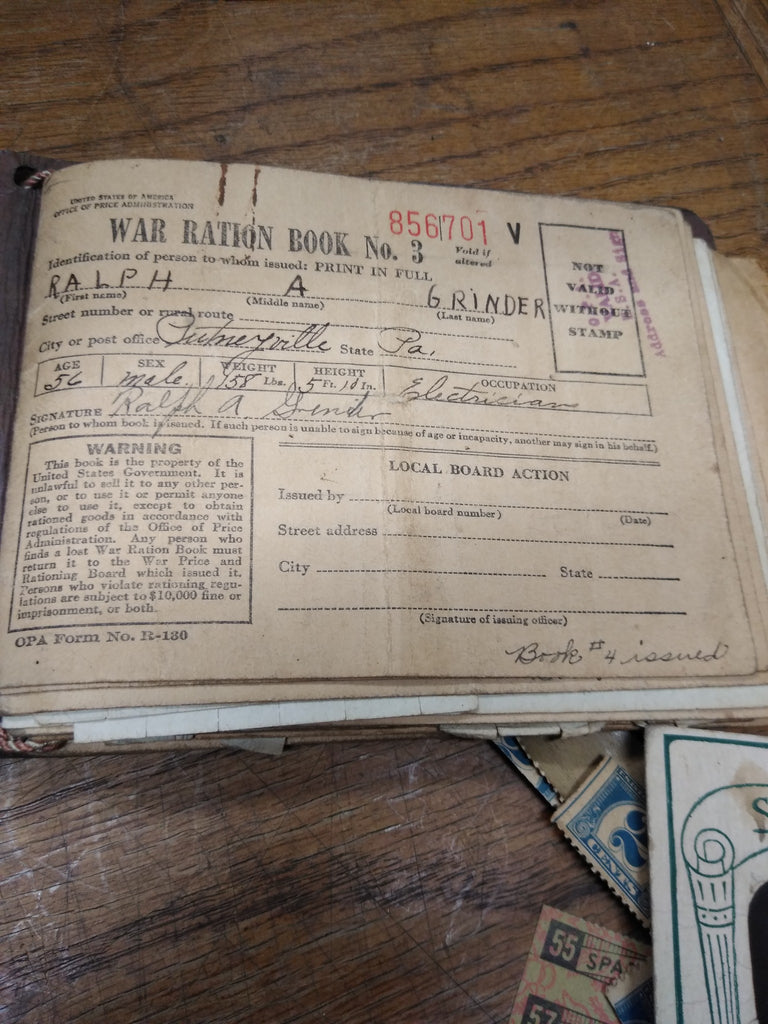 UNITED STATES OF AMERICA
OFFICE OF PRICE ADMINISTRATION
WAR RATION BOOK No. 3
856701 V
Void if
altered
Identification of person to whom issued: PRINT IN FULL
RALPH A GRINDER
(First name) (Middle name) (Last name)
Street number or rural route
City or post office Putneyville State Pa.
AGE SEX WEIGHT HEIGHT OCCUPATION
56 male 158 Lbs. 5 Ft. 10 In. Electrician
SIGNATURE Ralph A. Grinder
(Person to whom book is issued. If such person is unable to sign because of age or incapacity, another may sign in his behalf.)
NOT
VALID
WITHOUT
STAMP
Address
WARNING
This book is the property of the
United States Government. It is
unlawful to sell it to any other per-
son, or to use it or permit anyone
else to use it, except to obtain
rationed goods in accordance with
regulations of the Office of Price
Administration. Any person who
finds a lost War Ration Book must
return it to the War Price and
Rationing Board which issued it.
Persons who violate rationing regu-
lations are subject to $10,000 fine or
imprisonment, or both.
OPA Form No. R-130
LOCAL BOARD ACTION
Issued by
(Local board number) (Date)
Street address
City State
(Signature of issuing officer)
Book #4 issued
2
CENTS
55 SPA
57
S